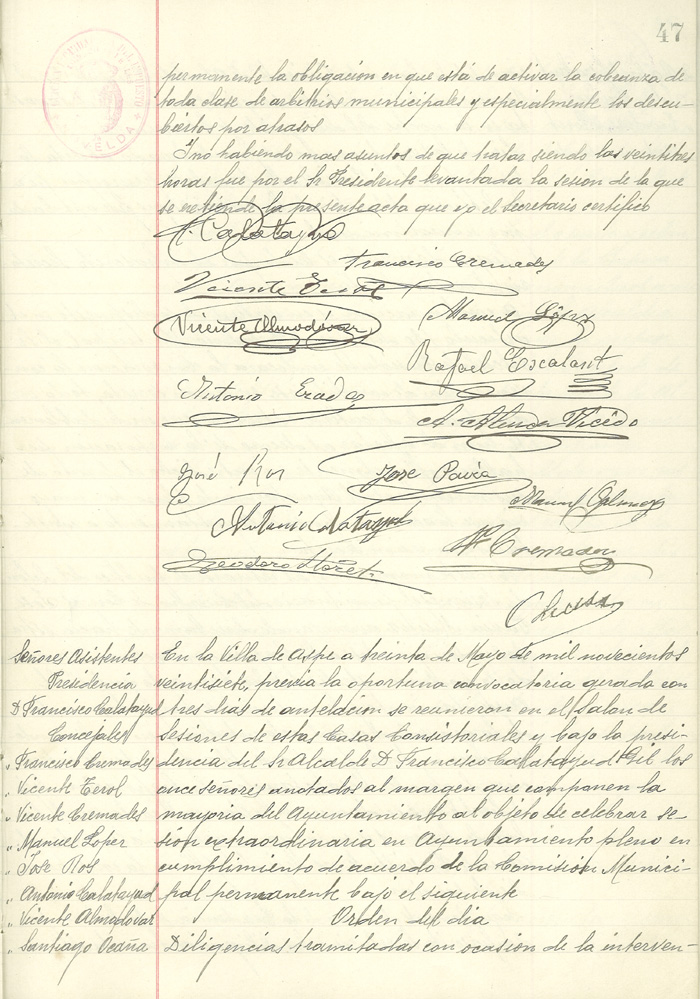 47
ELDA
permanente la obligación en que está de activar la cobranza de
toda clase de arbitrios municipales y especialmente los descu-
biertos por atrasos
Y no habiendo mas asuntos de que tratar siendo las veintitres
horas fue por el Sr Presidente levantada la sesion de la que
se extiende la presente acta que yo el Secretario certifico
F. Calatayud
Francisco Cremades
Vicente Terol
Manuel López
Vicente Almodóvar
Rafael Escalant
Antonio
A. Vicedo
José Ros
Jose Pavía
Manuel
Antonio Calatayud
Cremades
Teodoro
Señores Asistentes
Presidencia
D Francisco Calatayud
Concejales
" Francisco Cremades
" Vicente Terol
" Vicente Cremades
" Manuel Lopez
" Jose Ros
" Antonio Calatayud
" Vicente Almodovar
" Santiago Ocaña
En la Villa de Aspe a treinta de Mayo de mil novecientos
veintisiete, previa la oportuna convocatoria girada con
tres dias de antelacion se reunieron en el Salon de
Sesiones de estas Casas Consistoriales y bajo la presi-
dencia del Sr Alcalde D Francisco Calatayud Gil los
once señores anotados al margen que componen la
mayoria del Ayuntamiento al objeto de celebrar se-
sion extraordinaria en Ayuntamiento pleno en
cumplimiento de acuerdo de la Comisión Munici-
pal permanente bajo el siguiente
Orden del dia
Diligencias tramitadas con ocasion de la interven-